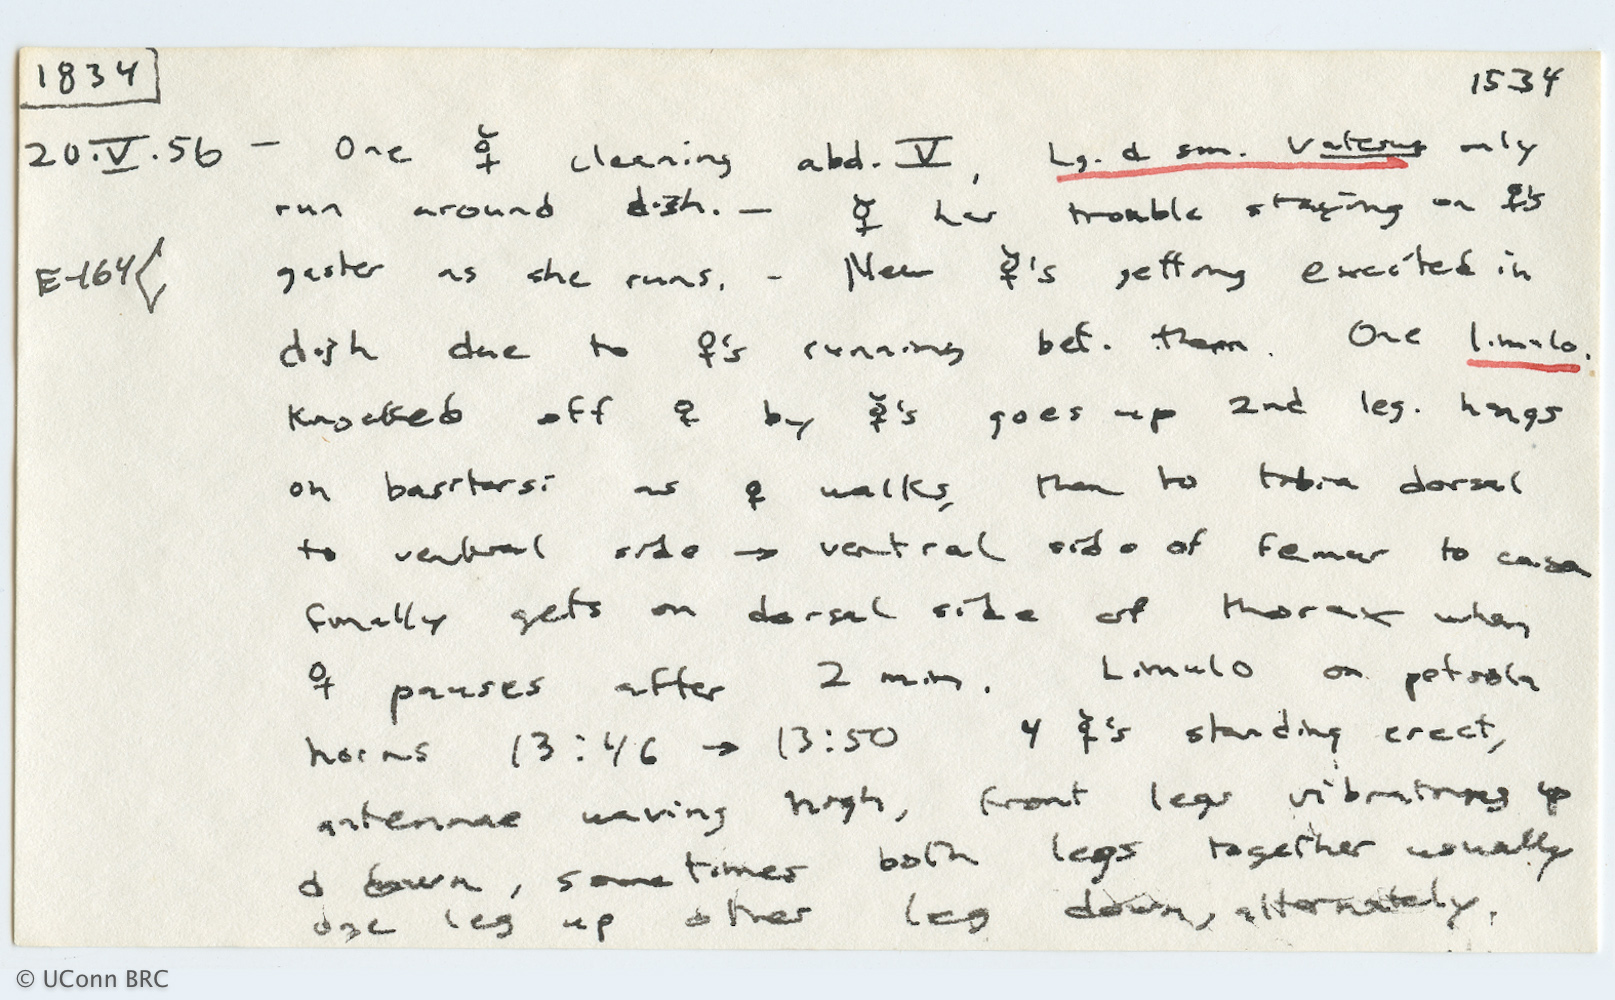 1834
1534
20.V.56 – One ☿ cleaning abd. V, Lg. & sm. Vatesus only
run around dish. – ☿ has trouble staying on ♀'s
E-164 gaster as she runs. – New ☿'s getting excited in
dish due to ♀'s running bet. them. One limulo.
Knocked off ♀ by ☿'s goes up 2nd leg. hangs
on basitarsi as ♀ walks, then to tibia dorsal
to ventral side → ventral side of femur to coxa
finally gets on dorsal side of thorax when
♀ pauses after 2 min. Limulo on petiole
horns 13:46 → 13:50 4 ☿'s standing erect,
antennae waving high, front legs vibrating up
& down, sometimes both legs together usually
one leg up other leg down, alternately.
© UConn BRC